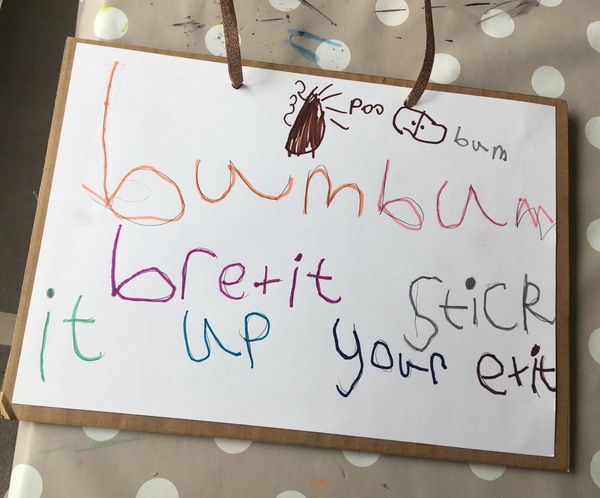 Poo
bum
bumbum
brexit stick
it up your exit